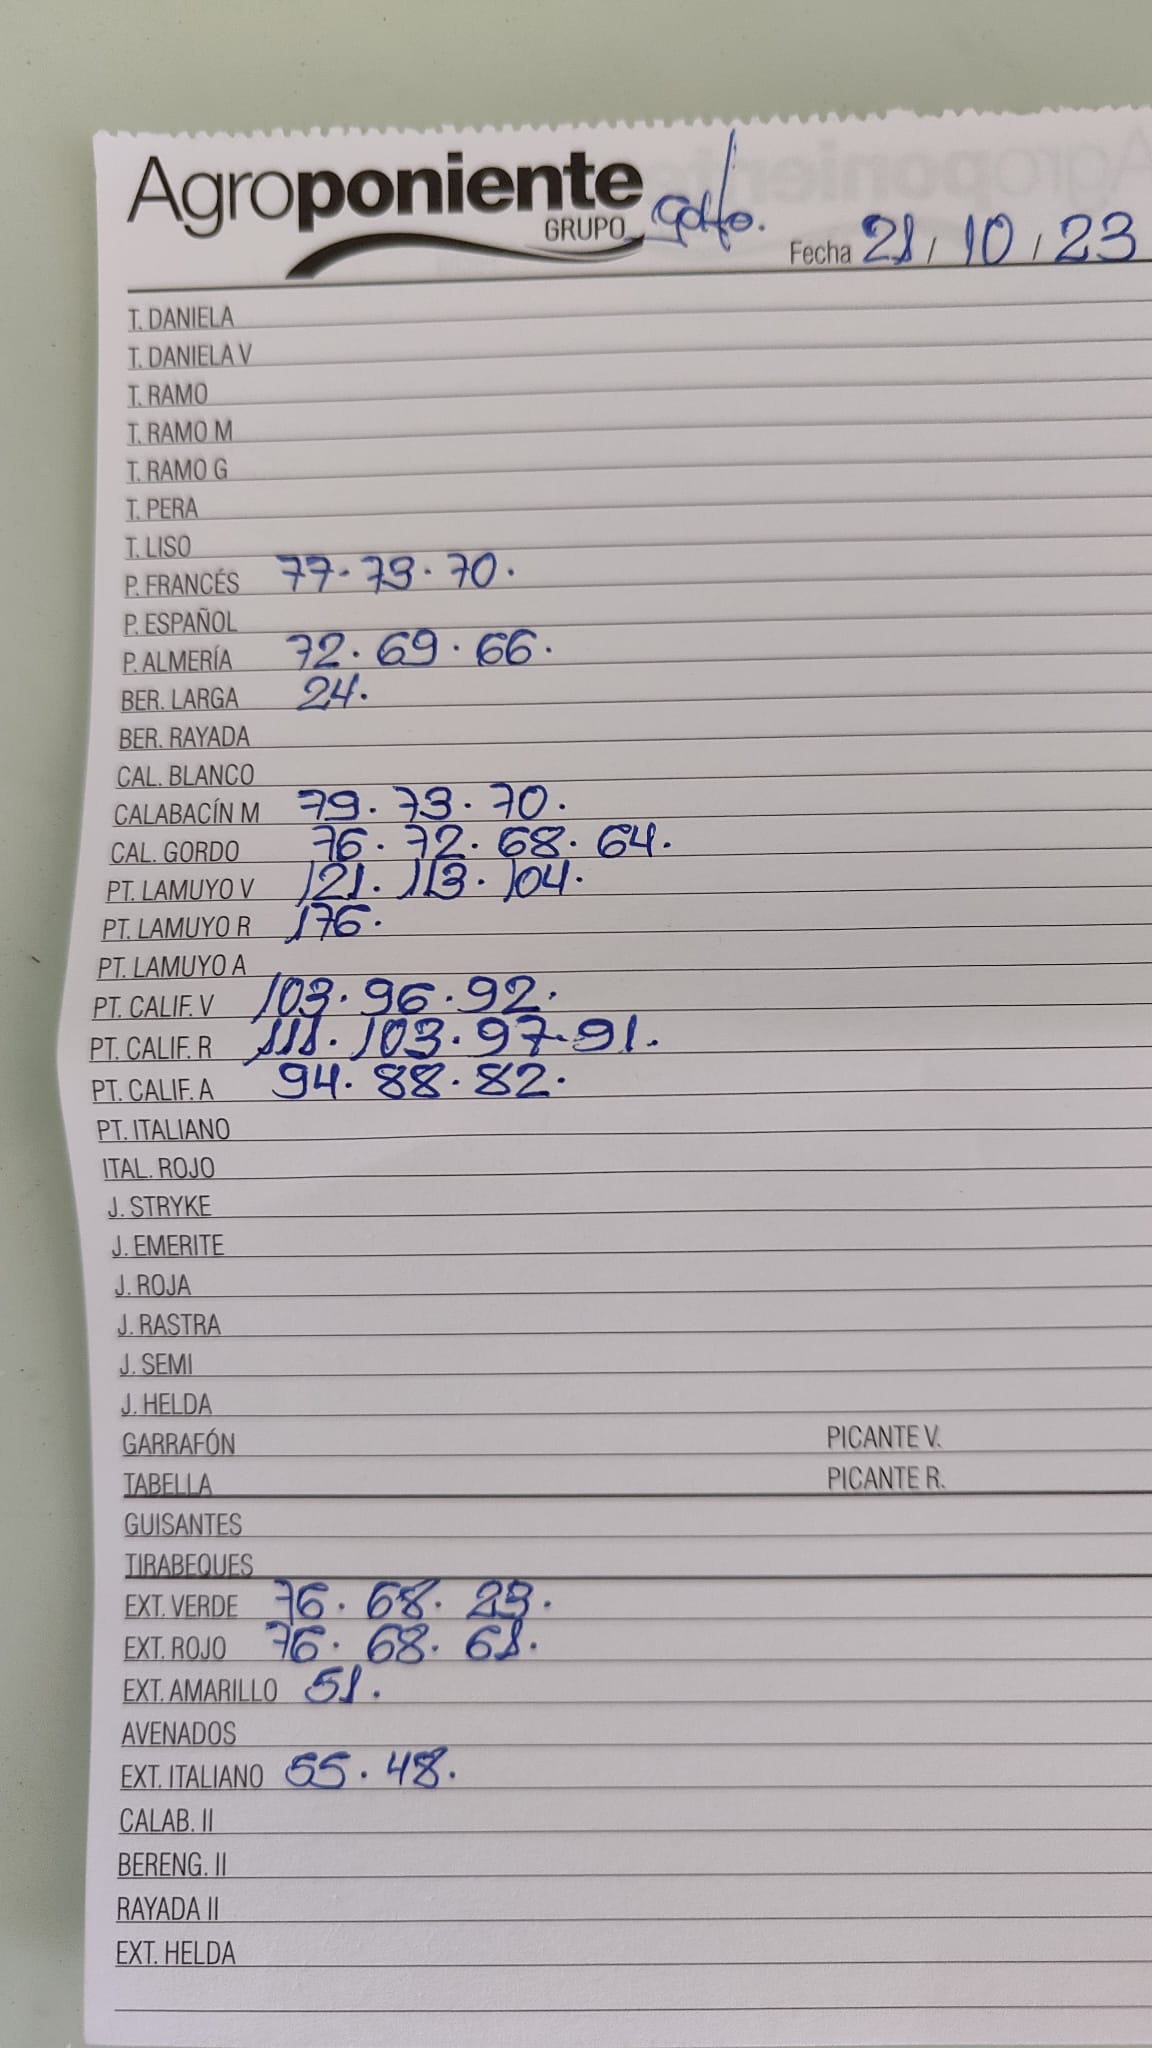 Agroponiente
GRUPO golfo.
Fecha 21/10/23
T. DANIELA
T. DANIELA V
T. RAMO
T. RAMO M
T. RAMO G
T. PERA
T. LISO
P. FRANCÉS 77. 73. 70.
P. ESPAÑOL
P. ALMERÍA 72. 69. 66.
BER. LARGA 24.
BER. RAYADA
CAL. BLANCO
CALABACÍN M 79. 73. 70.
CAL. GORDO 76. 72. 68. 64.
PT. LAMUYO V 121. 113. 104.
PT. LAMUYO R 176.
PT. LAMUYO A
PT. CALIF. V 103. 96. 92.
PT. CALIF. R 111. 103. 97. 91.
PT. CALIF. A 94. 88. 82.
PT. ITALIANO
ITAL. ROJO
J. STRYKE
J. EMERITE
J. ROJA
J. RASTRA
J. SEMI
J. HELDA
GARRAFÓN PICANTE V.
TABELLA PICANTE R.
GUISANTES
TIRABEQUES
EXT. VERDE 76. 68. 23.
EXT. ROJO 76. 68. 61.
EXT. AMARILLO 51.
AVENADOS
EXT. ITALIANO 55. 48.
CALAB. II
BERENG. II
RAYADA II
EXT. HELDA